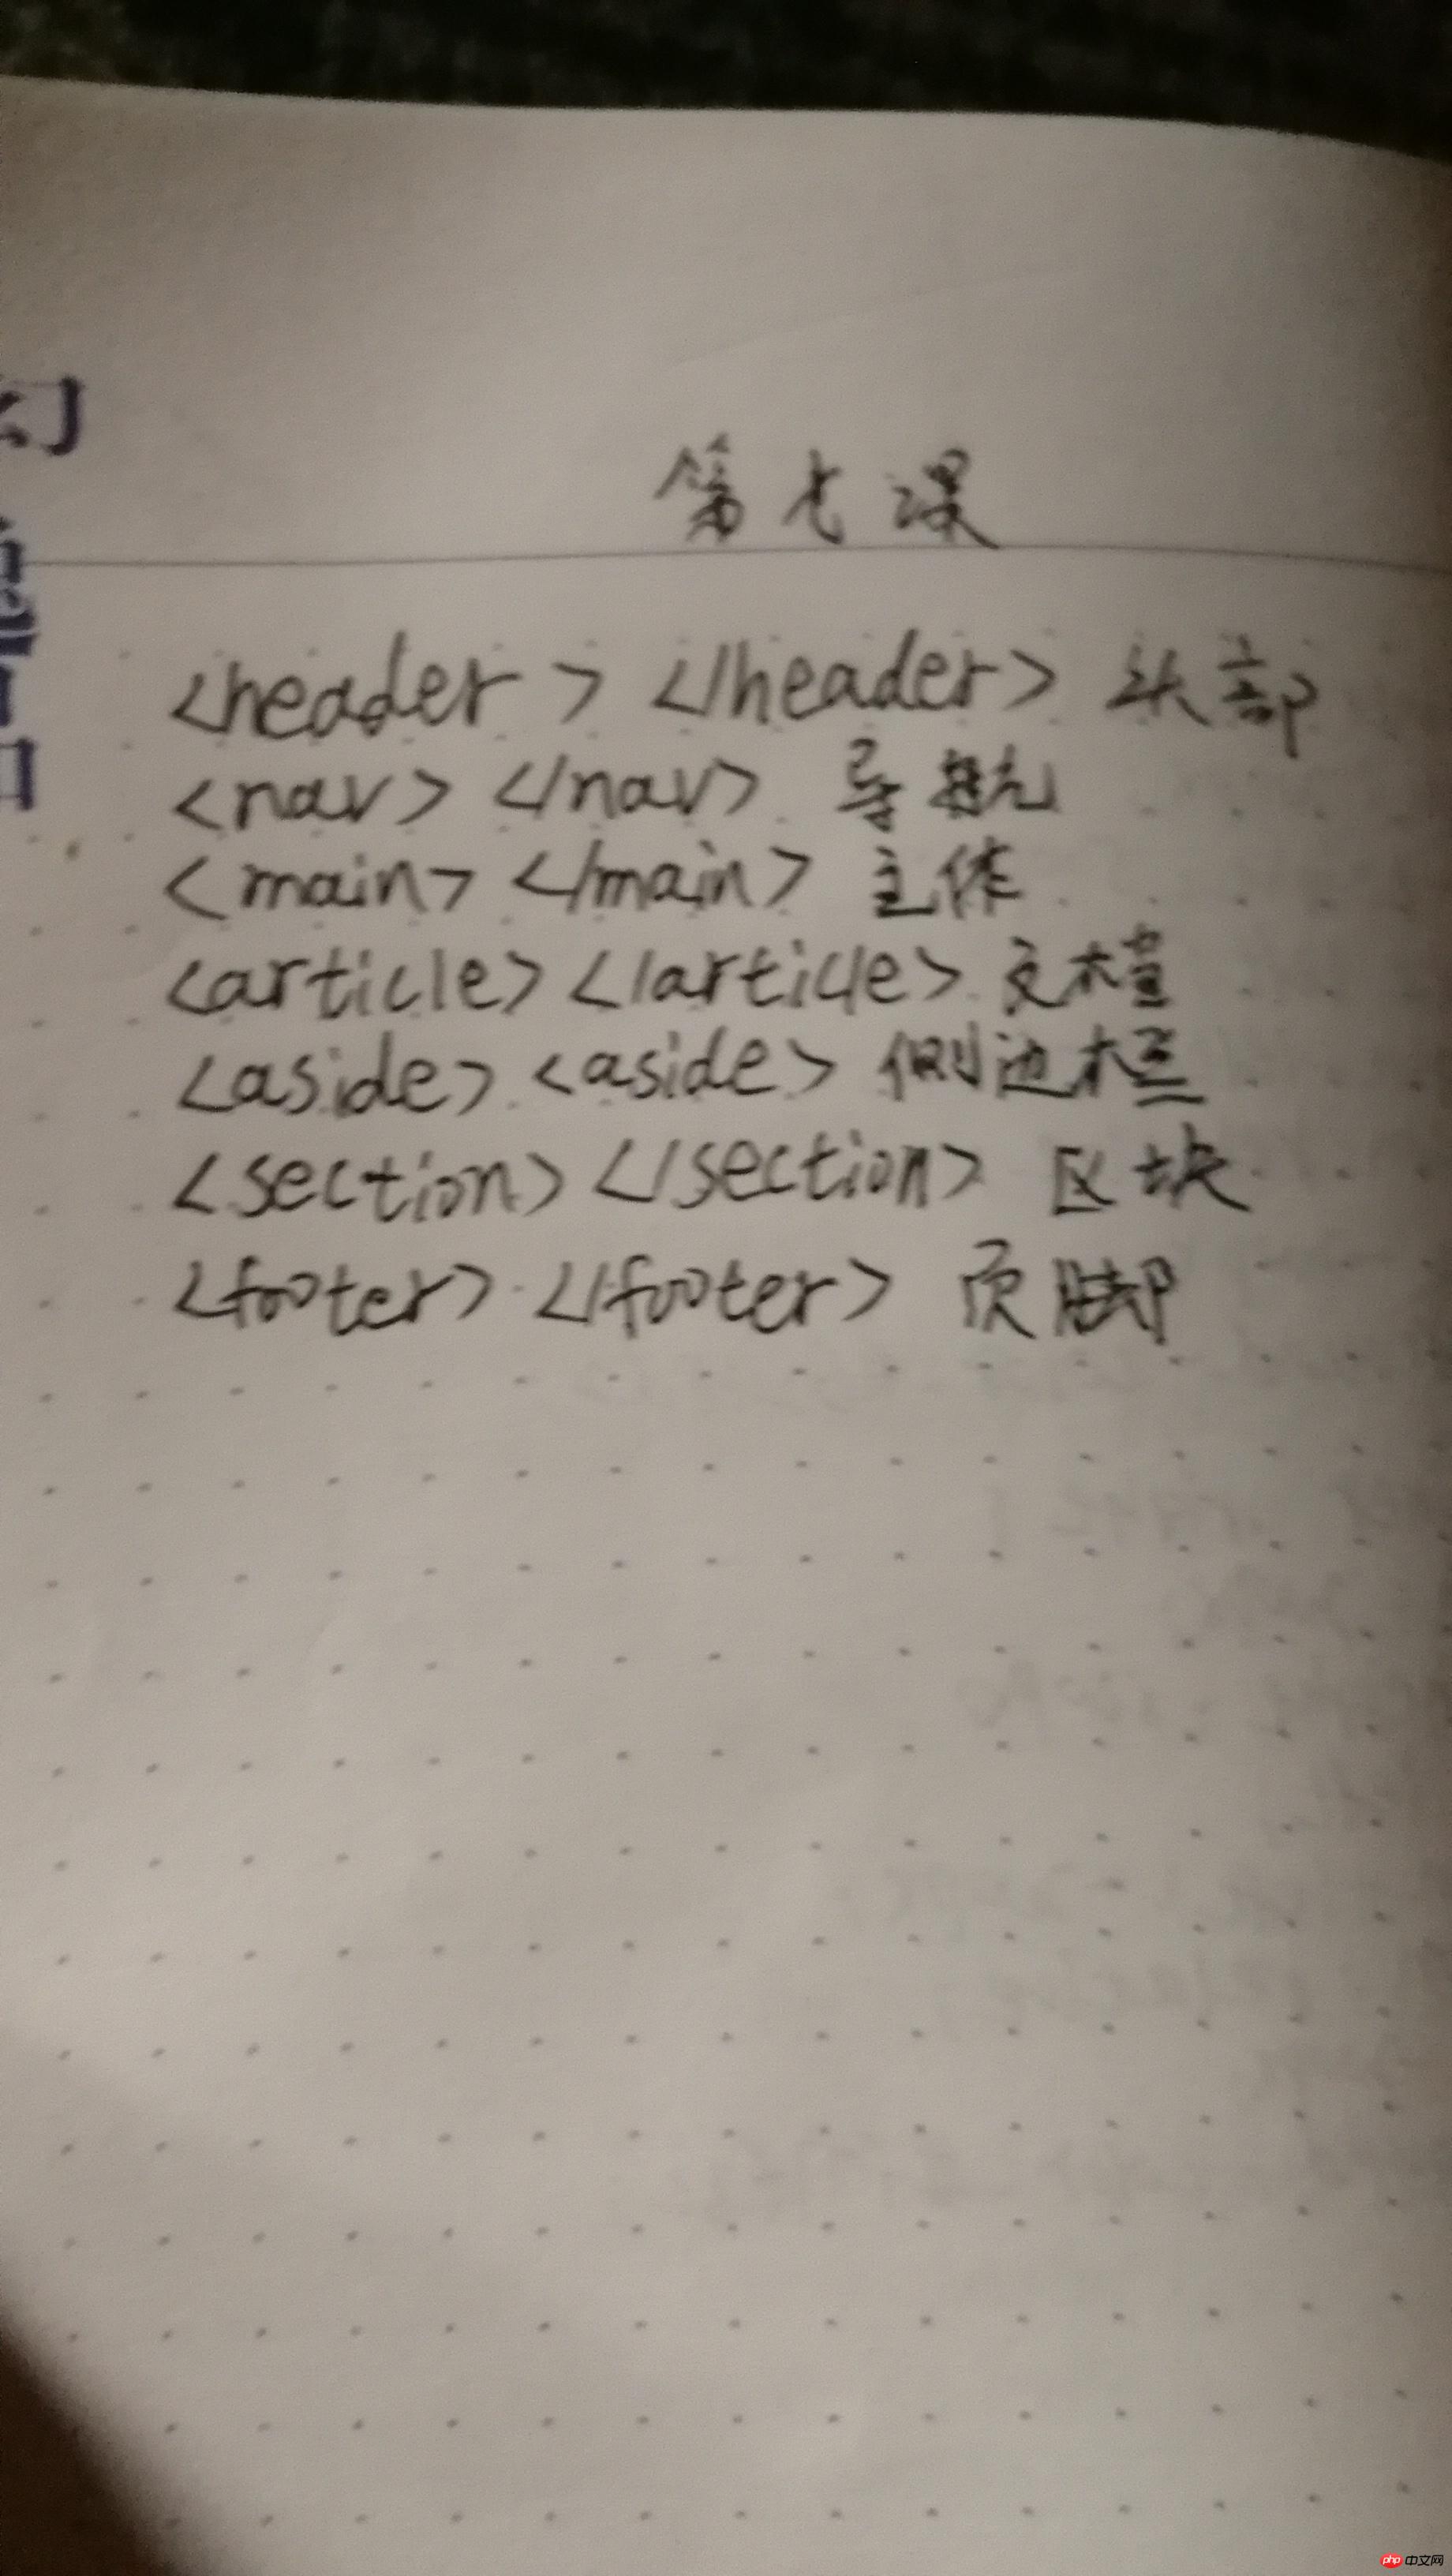 幻
第七课
<header> </header> 头部
<nav> </nav> 导航
<main> </main> 主体
<article> </article> 文档
<aside> <aside> 侧边栏
<section> </section> 区块
<footer> </footer> 页脚
php 中文网